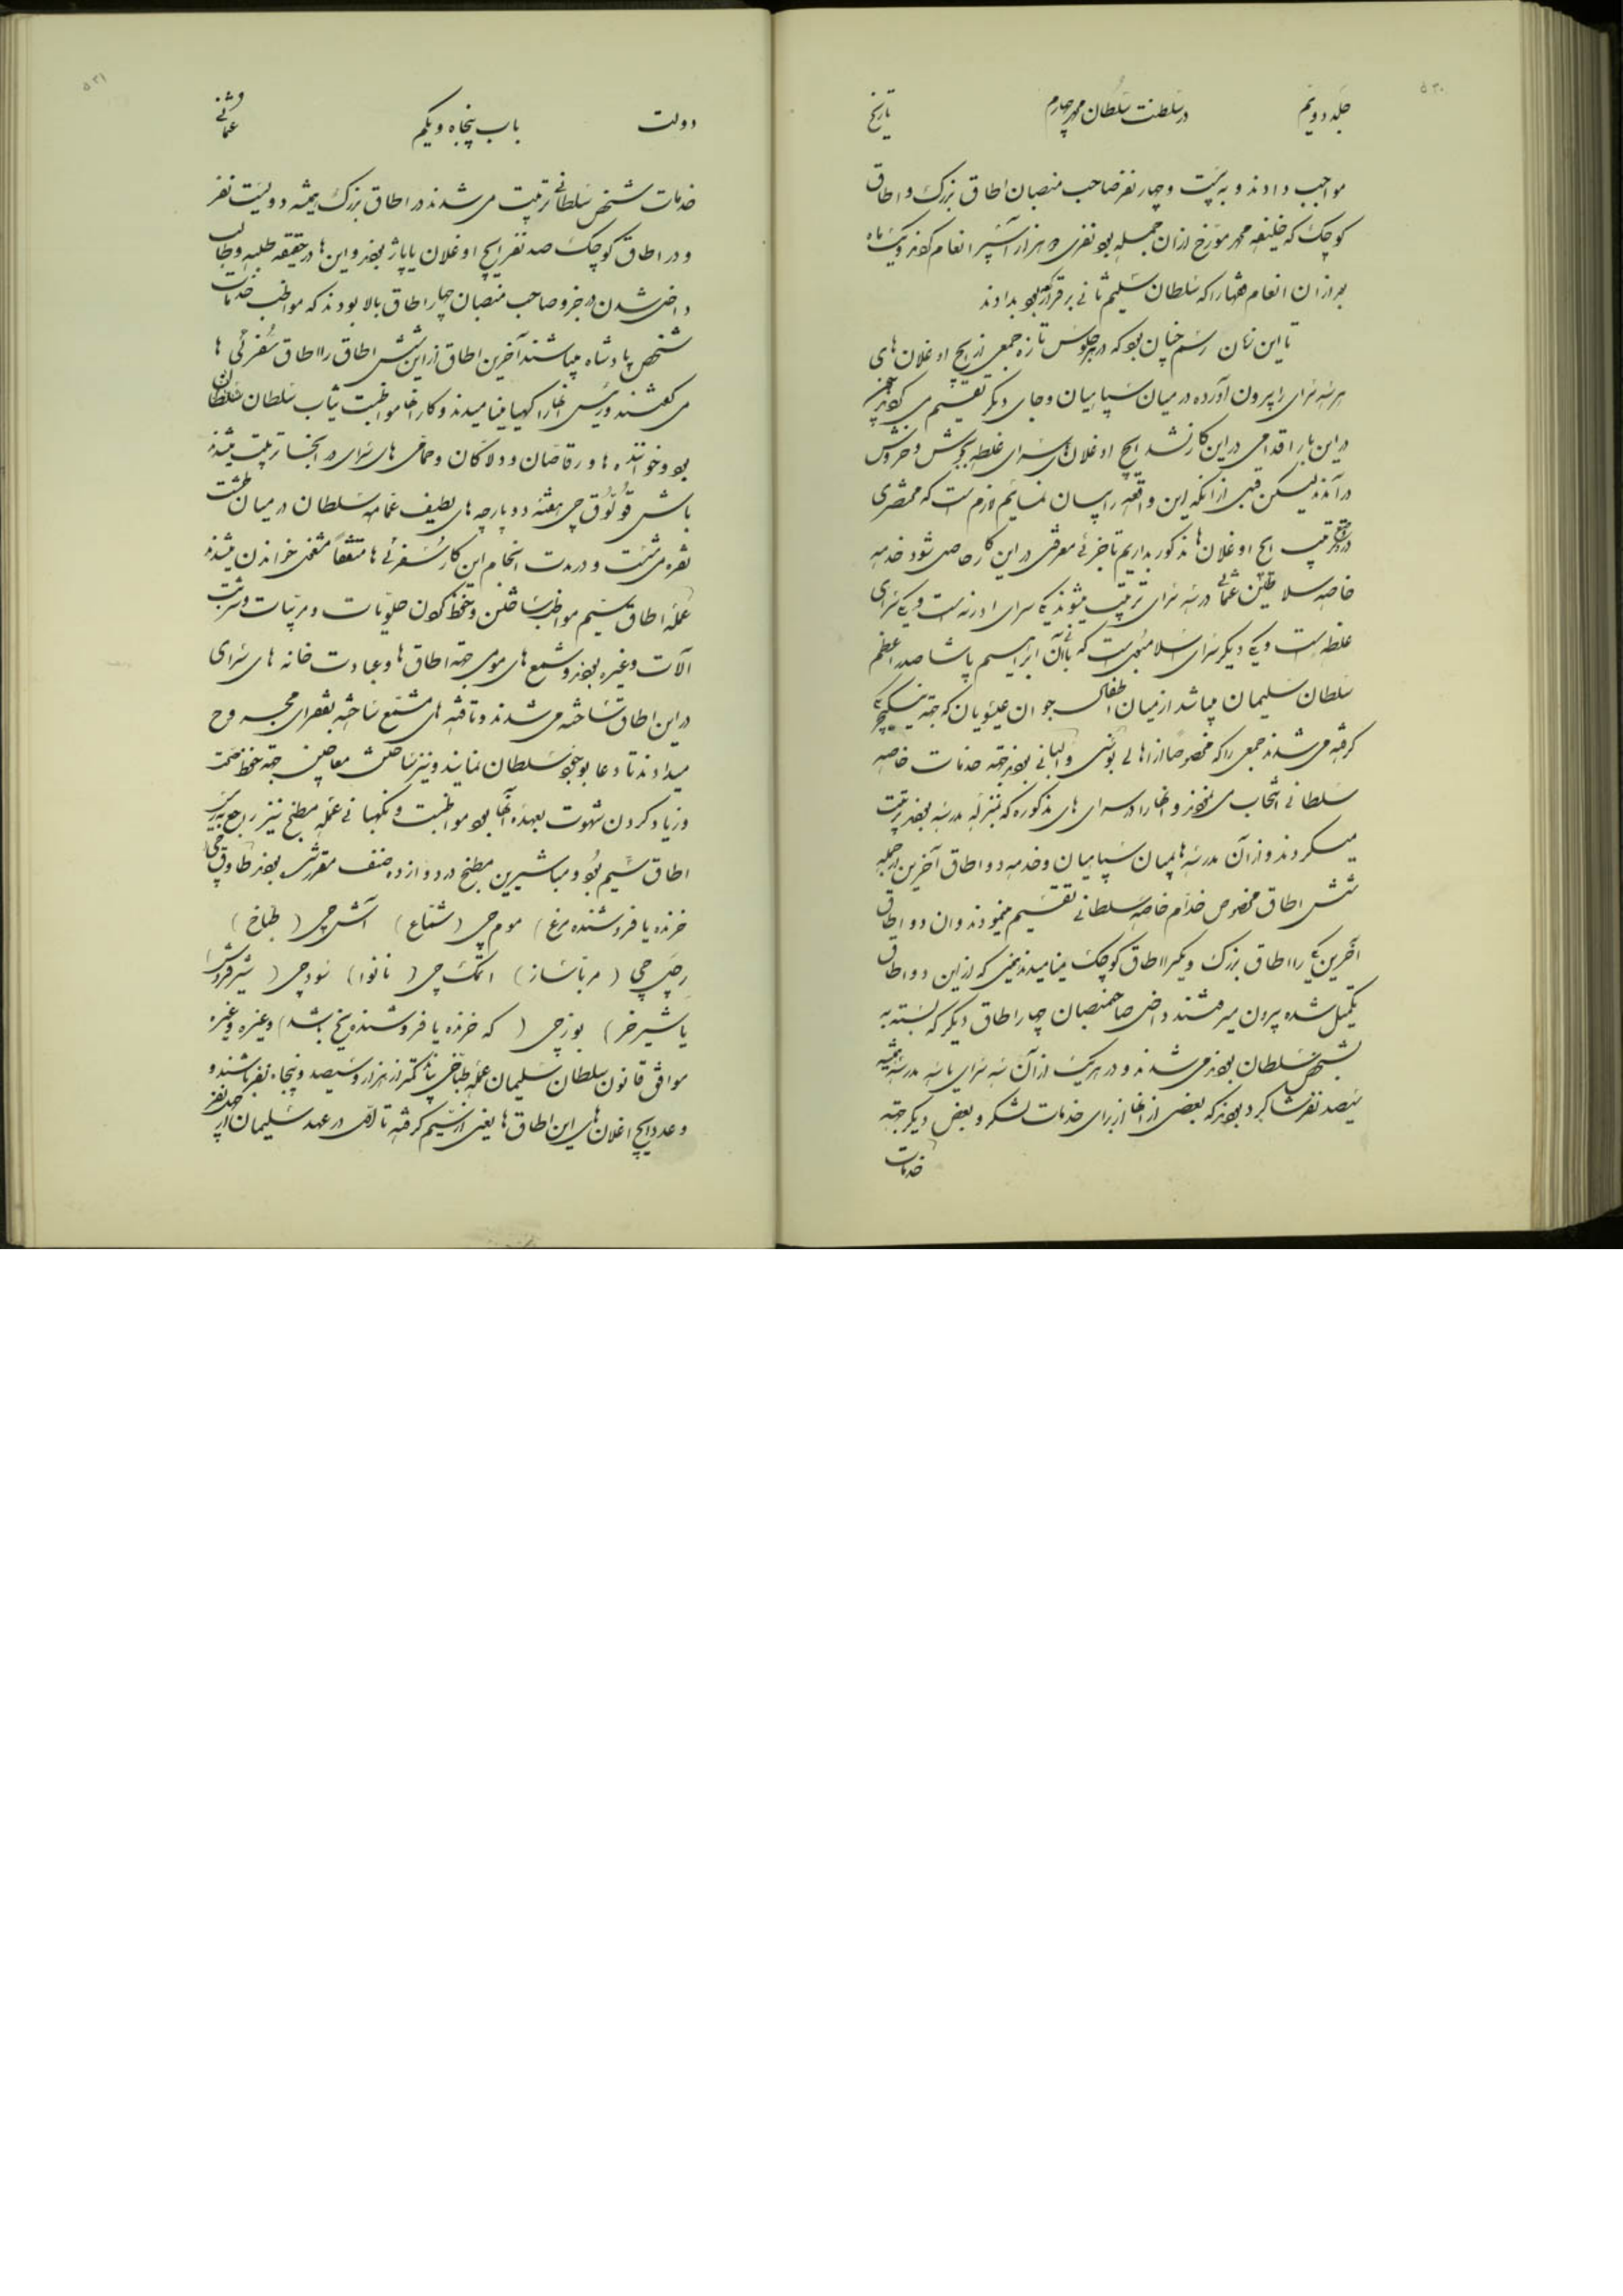 ۵۳۰
جلد دویم در سلطنت سلطان محمد چهارم تاریخ
مواجب دادند و به بیست و چهار نفر صاحب منصبان اطاق بزرگ و اطاق
کوچک که خلیفه محمد مورخ از آن جمله بود نفری دو هزار آسپر انعام کردند و یک ماه
بعد از آن انعام فقها را که سلطان سلیم ثانی برقرار کرده بود بدادند
تا این زمان رسم چنان بود که در هر جلوس تازه جمعی از ایچ اوغلان های
هر سه سرای را بیرون آورده در میان سپاهیان و جای دیگر تقسیم می کردند چون
در این بار اقدامی در این کار نشد ایچ اوغلان های سرای غلطه بجوش و خروش
درآمدند لیکن قبل از آنکه این واقعه را بیان نمائیم لازم است که مختصری
در وضع و ترتیب ایچ اوغلان ها مذکور بداریم تا جزئی معرفتی در این کار حاصل شود خدمه
خاصه سلاطین عثمانی در سه سرای تربیت میشوند یکی سرای ادرنه است و یکی سرای
غلطه است و یکی دیگر سرای اسلامبول است که بانی آن ابراهیم پاشا صدر اعظم
سلطان سلیمان میباشد از میان اطفال جوان عیسویان که جهته ینگیچری
گرفته می شدند جمعی را که مخصوصا از اهالی بوسنی و آلبانی بودند جهته خدمات خاصه
سلطانی انتخاب می نمودند و آنها را در سرای های مذکوره که بمنزله مدرسه بودند تربیت
میکردند و از آن مدرسه ها بمیان سپاهیان و خدمه دو اطاق آخرین از جمله
شش اطاق مخصوص خدام خاصه سلطانی تقسیم مینمودند و ان دو اطاق
آخرین یکی را اطاق بزرگ و یکی را اطاق کوچک مینامیدند یعنی که از این دو اطاق
تکمیل شده بیرون میرفتند داخل صاحبمنصبان چهار اطاق دیگر که بسته به
شخص سلطان بودند می شدند و در هر یک از آن سه سرای یا سه مدرسه همیشه
سیصد نفر شاگرد بودند که بعضی از آنها از برای خدمات لشکر و بعض دیگر جهته
خدمات
۵۳۱
دولت باب پنجاه و یکم عثمانی
خدمات شخص سلطانی تربیت می شدند در اطاق بزرگ همیشه دویست نفر
و در اطاق کوچک صد نفر ایچ اوغلان یا پاژ بودند و این ها در حقیقه طلبه و طالب
داخل شدن در جزو صاحب منصبان چهار اطاق بالا بودند که مواظب خدمات
شخص پادشاه میباشند آخرین اطاق از این شش اطاق را اطاق سفرلی ها
می گفتند و رئیس آنها را کهیا مینامیدند و کار آنها مواظبت ثیاب سلطان
بود و خواننده ها و رقاصان و دلاکان و حمامی های سرای در آنجا تربیت میشدند
باش قوللوق چی هفته دو پارچه های لطیف عمامه سلطان در میان طشت
نقره می شست و در مدت انجام این کار سفرلی ها متفقاً مشغول خواندن میشدند
عمله اطاق سیم مواظب ساختن و حفظ کردن حلویات و مربیات و شربت
آلات و غیره بودند و شمع های مومی جهته اطاق ها و عبادت خانه های سرای
در این اطاق ساخته می شدند و تافته های مشمع ساخته بفقرای مجروح
میدادند تا دعا بوجود سلطان نمایند و نیز ساختن معاجین جهته حفظ صحت
و زیاد کردن شهوت بعهده آنها بود مواظبت و نگهبانی عمله مطبخ نیز راجع به رئیس
اطاق سیم بود و مباشرین مطبخ در دوازده صنف مقرر بودند طاوق چی
خرنده یا فروشنده مرغ) موم چی (شماع) آش چی (طباخ)
رچل چی (مرباساز) اتمک چی (نانوا) سود چی (شیرفروش
یا شیرخر) بوز چی (که خرنده یا فروشنده یخ باشد) و غیره و غیره
موافق قانون سلطان سلیمان عمله طباخی نباید کمتر از هزار و سیصد و پنجاه نفر باشند و
و عدد ایچ اغلان های این اطاق ها یعنی از سیم گرفته تا اول در عهد سلیمان از نفر